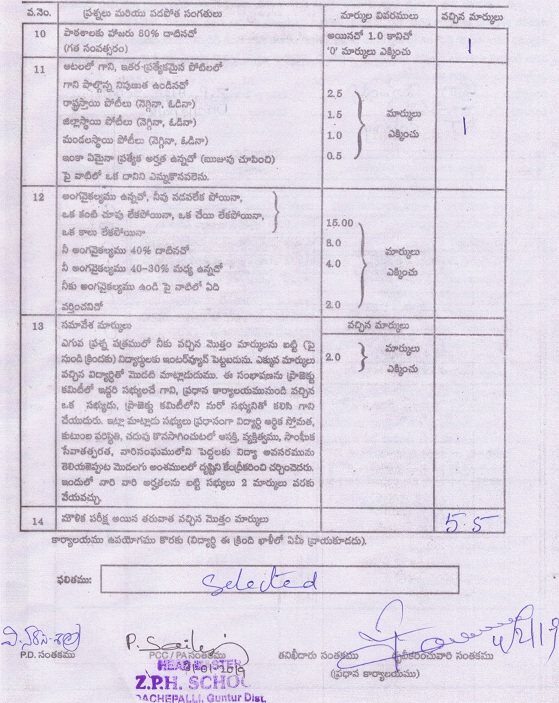 వ.నెం. ప్రశ్నలు మరియు పడపోత సంగతులు మార్కుల వివరములు వచ్చిన మార్కులు
10 పాఠశాలకు హాజరు 80% దాటినచో అయినచో 1.0 కానిచో 1
(గత సంవత్సరం) '0' మార్కులు ఎక్కించు
11 ఆటలలో గాని, ఇతర ప్రత్యేకమైన పోటీలలో
గాని పాల్గొన్న నిపుణుత ఉండినచో 2.5
రాష్ట్రస్థాయి పోటీలు (నెగ్గినా, ఓడినా) 1.5 మార్కులు 1
జిల్లాస్థాయి పోటీలు (నెగ్గినా, ఓడినా) 1.0 ఎక్కించు
మండలస్థాయి పోటీలు (నెగ్గినా, ఓడినా) 0.5
ఇంకా ఏమైనా ప్రత్యేక అర్హత ఉన్నచో (ఋజువు చూపించి)
పై వాటిలో ఒక దానిని ఎన్నుకొనవలెను.
12 అంగవైకల్యము ఉన్నచో, నీవు నడవలేక పోయినా,
ఒక కంటి చూపు లేకపోయినా, ఒక చేయి లేకపోయినా, 15.00
ఒక కాలు లేకపోయినా 8.0
నీ అంగవైకల్యము 40% దాటినచో 4.0 మార్కులు
నీ అంగవైకల్యము 40-30% మధ్య ఉన్నచో ఎక్కించు
నీకు అంగవైకల్యము ఉండి పై వాటిలో ఏది
వర్తించనిచో 2.0
13 సమావేశ మార్కులు వచ్చిన మార్కులు
ఎగువ ప్రశ్న పత్రములో నీకు వచ్చిన మొత్తం మార్కులను బట్టి (పై
నుండి క్రిందకు) విద్యార్థులకు ఇంటర్వ్యూస్ పెట్టబడును. ఎక్కువ మార్కులు 2.0 మార్కులు
వచ్చిన విద్యార్థితో మొదటి మాట్లాడుదుము. ఈ సంభాషణను ప్రాజెక్టు ఎక్కించు
కమిటీలో ఇద్దరి సభ్యులచే గాని, ప్రధాన కార్యాలయమునుండి వచ్చిన
ఒక సభ్యుడు, ప్రాజెక్టు కమిటీలోని మరో సభ్యునితో కలిసి గాని
చేయుదురు. ఇట్లా మాట్లాడు సభ్యులు ప్రధానంగా విద్యార్థి ఆర్థిక స్తోమత,
కుటుంబ పరిస్థితి, చదువు కొనసాగించుటలో ఆసక్తి, వ్యక్తిత్వము, సాంఘీక
సేవాతత్పరత, వారిసంఘములోని పెద్దలకు విద్యా అవసరమును
తెలియజెప్పుట మొదలగు అంశములలో దృష్టిని కేంద్రీకరించి చర్చించెదరు.
ఇందులో వారి వారి అర్హతలను బట్టి సభ్యులు 2 మార్కులు వరకు
వేయవచ్చు.
14 మౌళిక పరీక్ష అయిన తరువాత వచ్చిన మొత్తం మార్కులు 5.5
కార్యాలయము ఉపయోగము కొరకు (విద్యార్థి ఈ క్రింది ఖాళీలో ఏమీ వ్రాయకూడదు).
ఫలితము: Selected
P.D. సంతకము PCC / PA సంతకము తనిఖీదారు సంతకము స్వీకరించువారి సంతకము
(ప్రధాన కార్యాలయము)
Z.P.H. SCHOOL
DACHEPALLI, Guntur Dist.